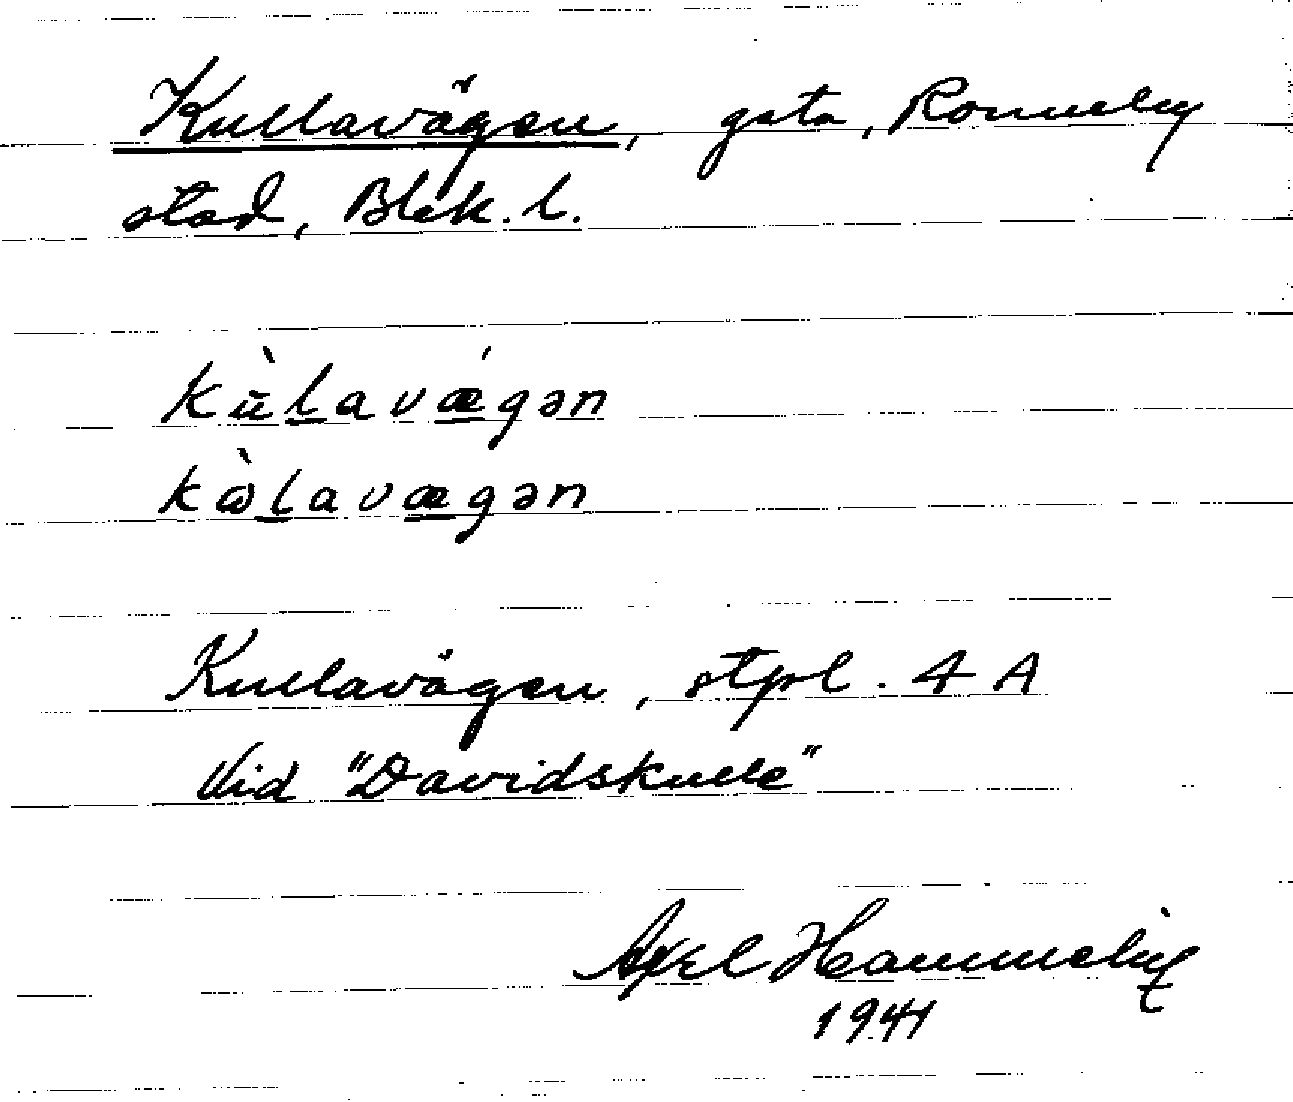 Kullavägen, gata, Ronneby
stad, Blek. l.
kùl̲avǽgən
kὼl̲avægən
Kullavägen, stpl. 4 A
Vid "Davidskulle"
Axel
1941